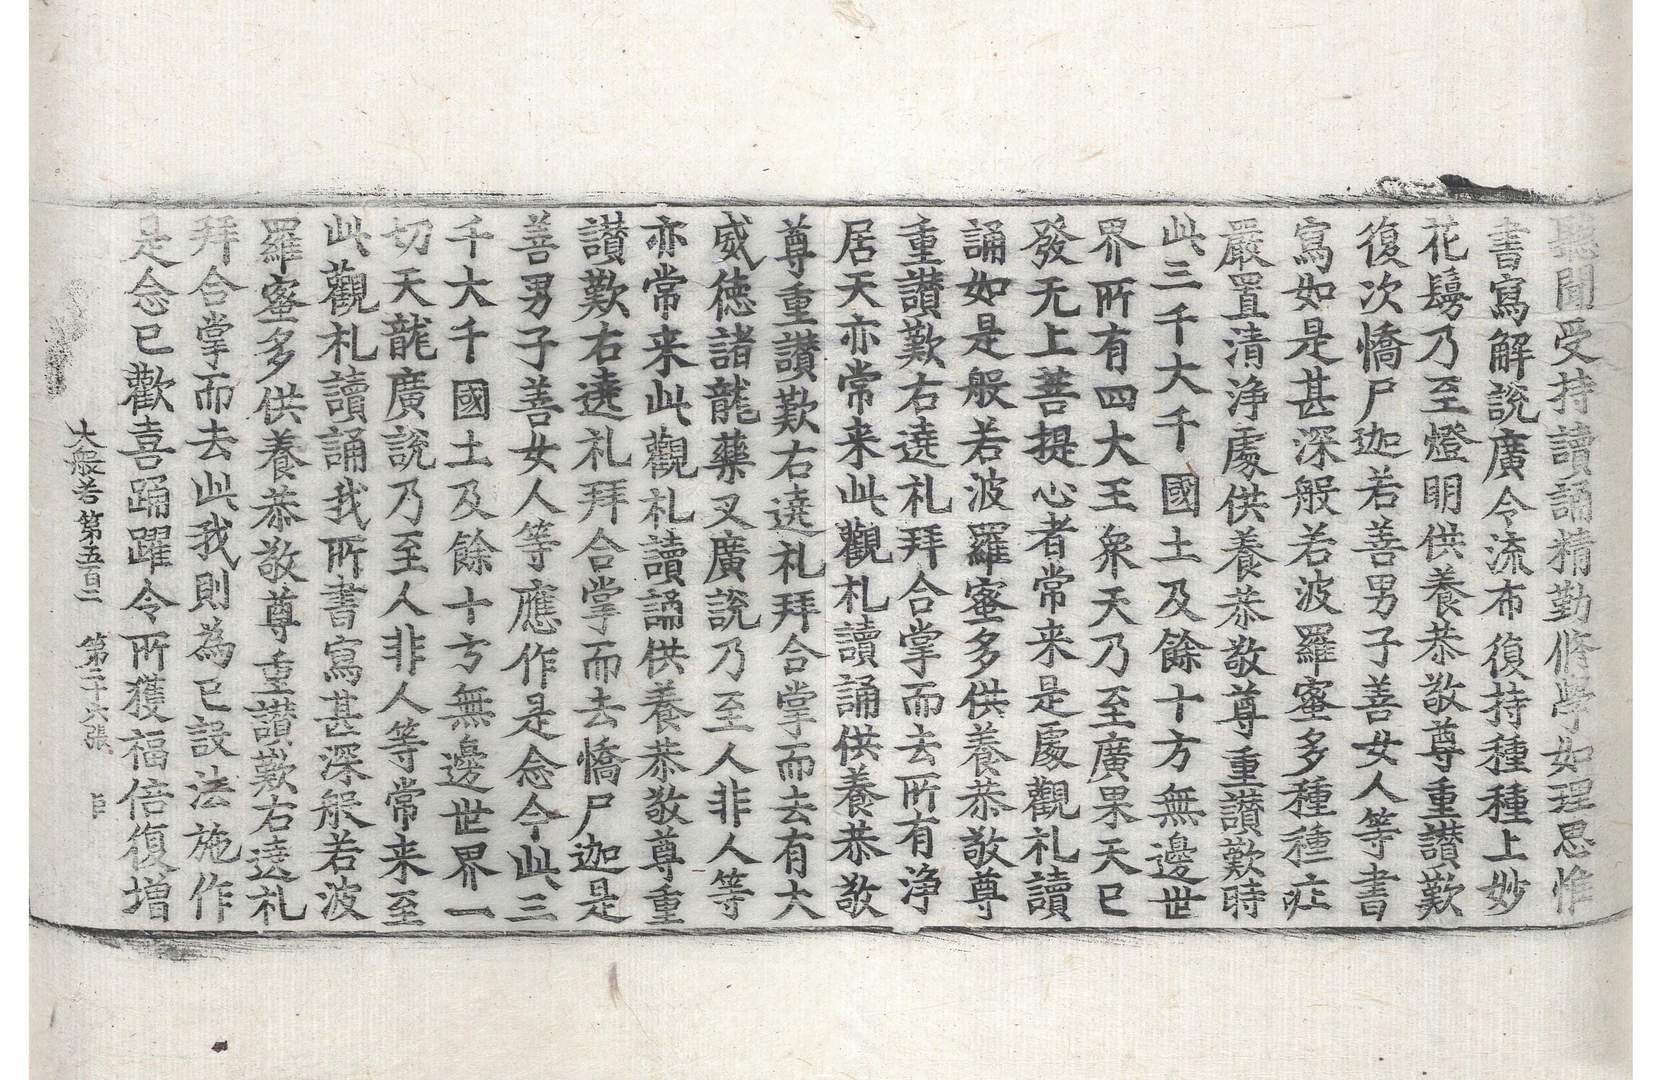 聽聞受持讀誦精勤修學如理思惟
書寫解說廣令流布復持種種上妙
花鬘乃至燈明供養恭敬尊重讃歎
復次憍尸迦若善男子善女人等書
寫如是甚深般若波羅蜜多種種㽵
嚴置清淨處供養恭敬尊重讃歎時
此三千大千國土及餘十方無邊世
界所有四大王衆天乃至廣果天已
發无上菩提心者常来是處觀礼讀
誦如是般若波羅蜜多供養恭敬尊
重讃歎右遶礼拜合掌而去所有淨
居天亦常来此觀礼讀誦供養恭敬
尊重讃歎右遶礼拜合掌而去有大
威德諸龍藥叉廣說乃至人非人等
亦常来此觀礼讀誦供養恭敬尊重
讃歎右遶礼拜合掌而去憍尸迦是
善男子善女人等應作是念今此三
千大千國土及餘十方無邊世界一
切天龍廣說乃至人非人等常来至
此觀礼讀誦我所書寫甚深般若波
羅蜜多供養恭敬尊重讃歎右遶礼
拜合掌而去此我則為已設法施作
是念已歡喜踊躍令所獲福倍復增
大般若第五百二 第二十六張